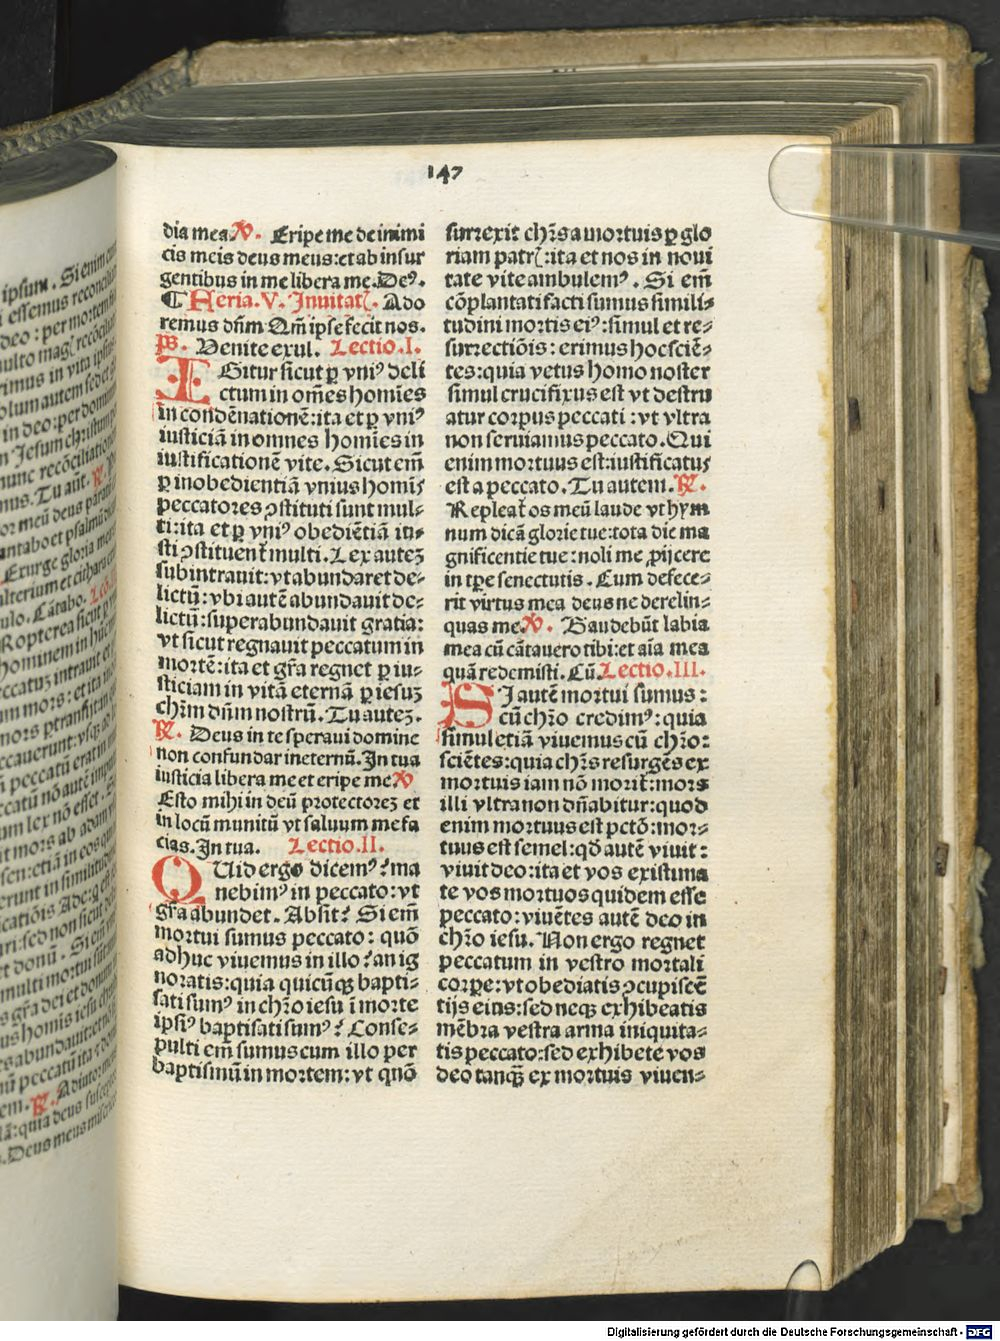 147
dia mea. ℣. Eripe me de inimi
cis meis deus meus: et ab insur
gentibus in me libera me. De⁹.
¶ Feria. V. Inuitatꝭ. Ado
remus dn̄m Qm̄ ipse fecit nos.
ps. Venite exul. Lectio. I.
IGitur sicut ꝑ vni⁹ deli
ctum in om̄es homīes
in condēnationē: ita et ꝑ vni⁹
iusticiā in omnes homīes in
iustificationē vite. Sicut em̄
ꝑ inobedientiā vnius homīs
peccatores ꝯstituti sunt mul⸗
ti: ita et ꝑ vni⁹ obediētiā iu⸗
sti ꝯstituent̄ multi. Lex auteꝫ
subintrauit: vt abundaret de⸗
lictū: vbi autē abundauit de⸗
lictū: superabundauit gratia:
vt sicut regnauit peccatum in
mortē: ita et gr̄a regnet ꝑ iu⸗
sticiam in vitā eternā ꝑ iesuꝫ
chr̄m dn̄m nostrū. Tu auteꝫ.
℟. Deus in te speraui domine
non confundar ineternū. In tua
iusticia libera me et eripe me ℣
Esto mihi in deū protectoreꝫ et
in locū munitū vt saluum me fa
cias. In tua. Lectio. II.
QUid ergo dicem⁹? ma
nebim⁹ in peccato: vt
gr̄a abundet. Absit? Si em̄
mortui sumus peccato: quō
adhuc viuemus in illo? an ig
noratis: quia quicūqꝫ bapti⸗
sati sum⁹ in chr̄o iesu ī morte
ipsi⁹ baptisati sum⁹? Conse⸗
pulti em̄ sumus cum illo per
baptismū in mortem: vt quō
surrexit chr̄s a mortuis ꝑ glo
riam patrꝭ: ita et nos in noui
tate vite ambulem⁹. Si em̄
cōplantati facti sumus simili⸗
tudini mortis ei⁹: simul et re⸗
surrectiōis: erimus hoc sciē⸗
tes: quia vetus homo noster
simul crucifixus est vt destru
atur corpus peccati: vt vltra
non seruiamus peccato. Qui
enim mortuus est: iustificatus
est a peccato. Tu autem. ℟.
Repleat̄ os meū laude vt hym
num dicā glorie tue: tota die ma
gnificentie tue: noli me ꝓijcere
in tꝑe senectutis. Cum defece⸗
rit virtus mea deus ne derelin⸗
quas me. ℣. Gaudebūt labia
mea cū cātauero tibi: et aīa mea
quā redemisti. Cū. Lectio. III.
SI autē mortui sumus:
cū chr̄o credim⁹: quia
simul etiā viuemus cū chr̄o:
sciētes: quia chr̄s resurgēs ex
mortuis iam nō morit̄: mors
illi vltra non dn̄abitur: quod
enim mortuus est pctō: mor⸗
tuus est semel: qđ autē viuit:
viuit deo: ita et vos existima
te vos mortuos quidem esse
peccato: viuētes autē deo in
chr̄o iesu. Non ergo regnet
peccatum in vestro mortali
corpe: vt obediatis ꝯcupiscē
tijs eius: sed neqꝫ exhibeatis
mēbra vestra arma iniquita⸗
tis peccato: sed exhibete vos
deo tanqꝫ̄ ex mortuis viuen⸗
Digitalisierung gefördert durch die Deutsche Forschungsgemeinschaft - DFG